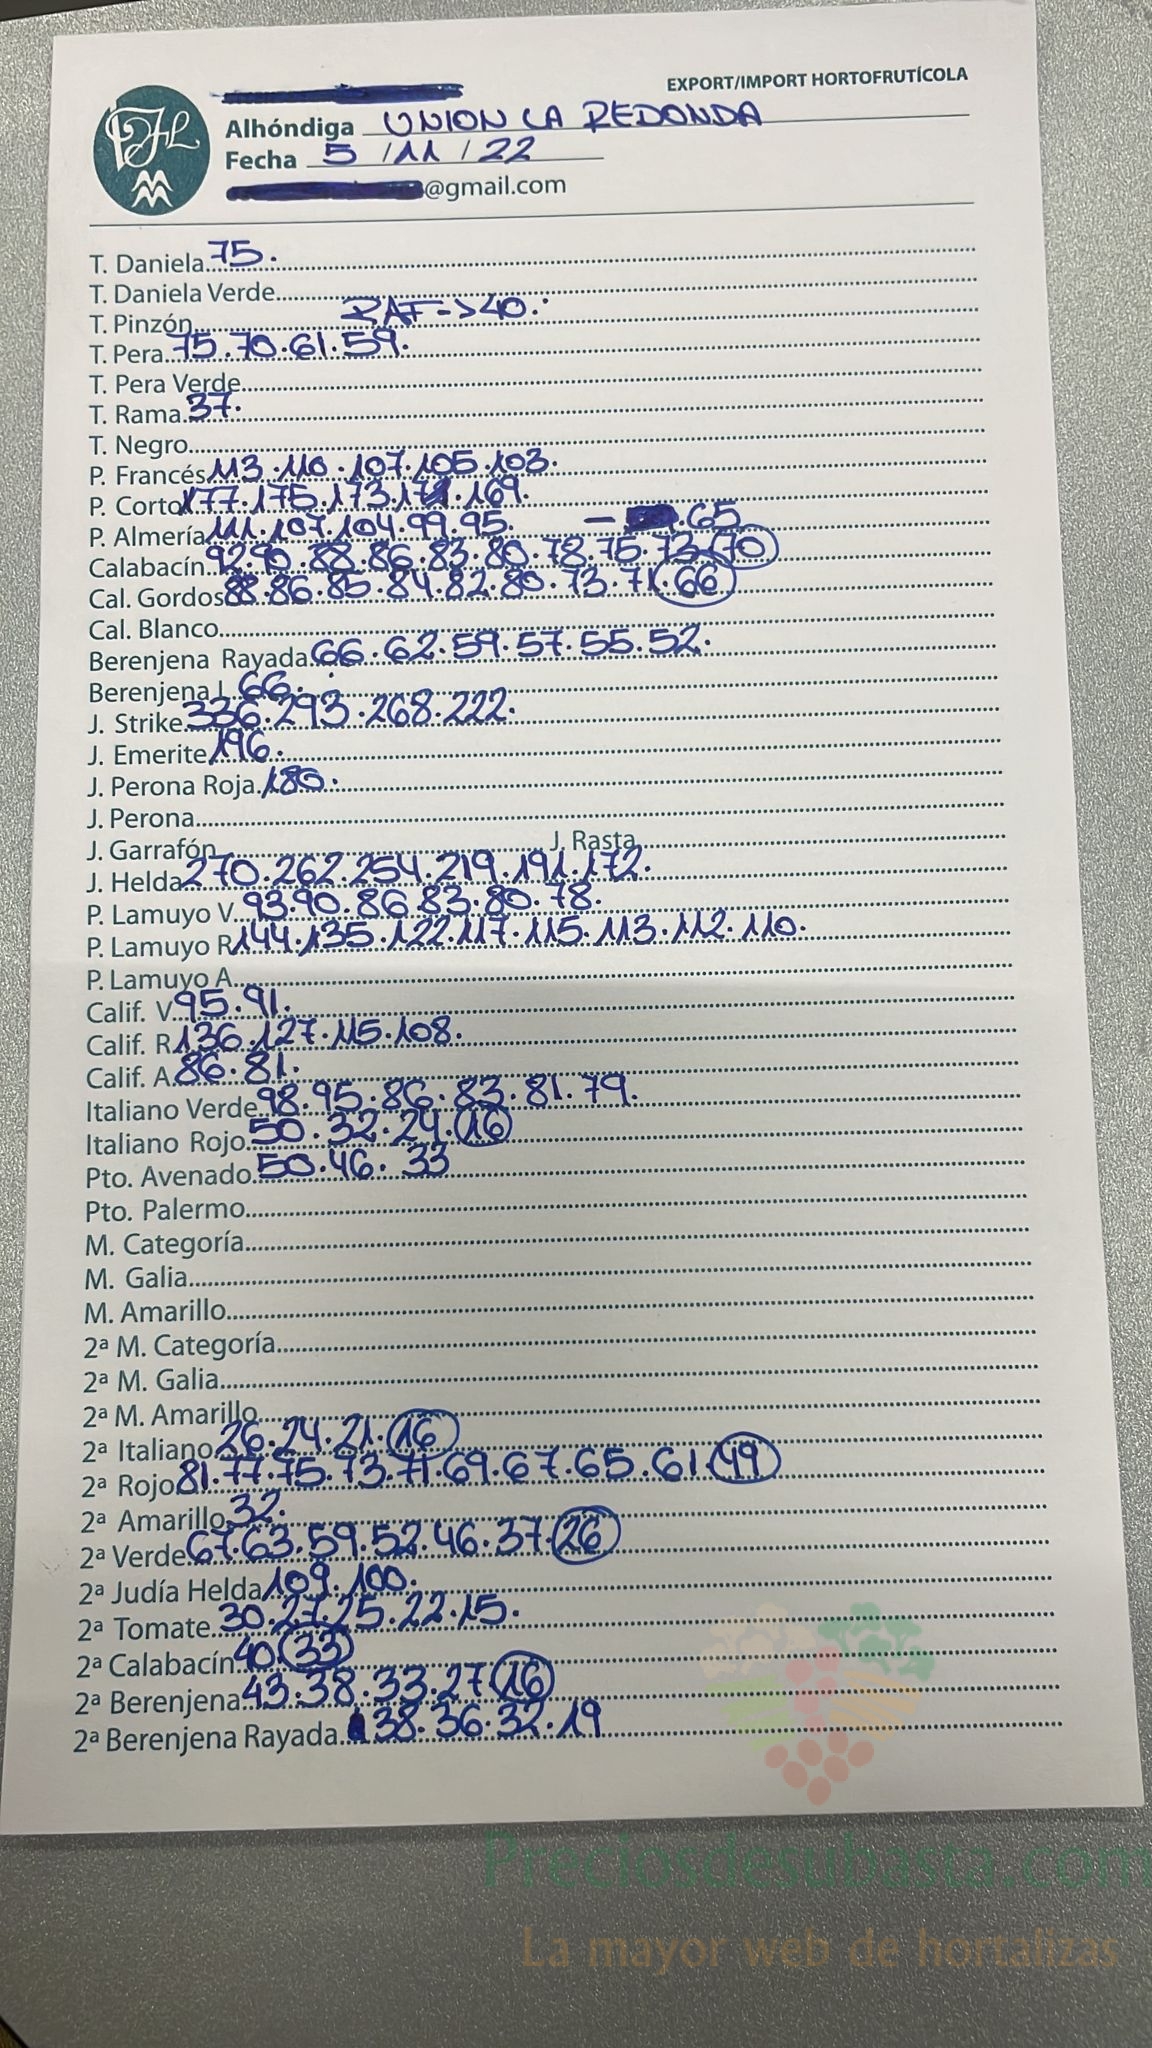 EXPORT/IMPORT HORTOFRUTÍCOLA
Alhóndiga UNION LA REDONDA
Fecha 5 / 11 / 22
@gmail.com
T. Daniela 75.
T. Daniela Verde
T. Pinzón RAF -> 40.
T. Pera 75.70.61.59.
T. Pera Verde
T. Rama 37.
T. Negro
P. Francés 113.110.107.105.103.
P. Corto 177.175.173.171.169.
P. Almería 111.107.104.99.95. - .65
Calabacín 92.90.88.86.83.80.78.75.73.70
Cal. Gordos 88.86.85.84.82.80.73.71.66
Cal. Blanco
Berenjena Rayada 66.62.59.57.55.52.
Berenjena L 66.
J. Strike 336.293.268.222.
J. Emerite 196.
J. Perona Roja 180.
J. Perona
J. Garrafón J. Rasta
J. Helda 270.262.254.219.191.172.
P. Lamuyo V. 93.90.86.83.80.78.
P. Lamuyo R 144.135.122.117.115.113.112.110.
P. Lamuyo A
Calif. V. 95.91.
Calif. R 136.127.115.108.
Calif. A 86.81.
Italiano Verde 98.95.86.83.81.79.
Italiano Rojo 50.32.24.16
Pto. Avenado 50.46.33
Pto. Palermo
M. Categoría
M. Galia
M. Amarillo
2ª M. Categoría
2ª M. Galia
2ª M. Amarillo
2ª Italiano 26.24.21.16
2ª Rojo 81.77.75.73.71.69.67.65.61.49
2ª Amarillo 32.
2ª Verde 67.63.59.52.46.37.26
2ª Judía Helda 109.100.
2ª Tomate 30.27.25.22.15.
2ª Calabacín 40.33
2ª Berenjena 43.38.33.27.16
2ª Berenjena Rayada 38.36.32.19
Preciosdesubasta.com
La mayor web de hortalizas